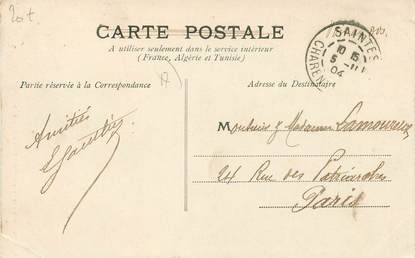 20 t
CARTE POSTALE
A utiliser seulement dans le service intérieur
(France, Algérie et Tunisie)
SAINTES
10 15
5 -11
04
CHAREN
Partie réservée à la Correspondance
Adresse du Destinataire
Amitiés
Monsieur & Madame Lamoureux
24 Rue des Patriarches
Paris